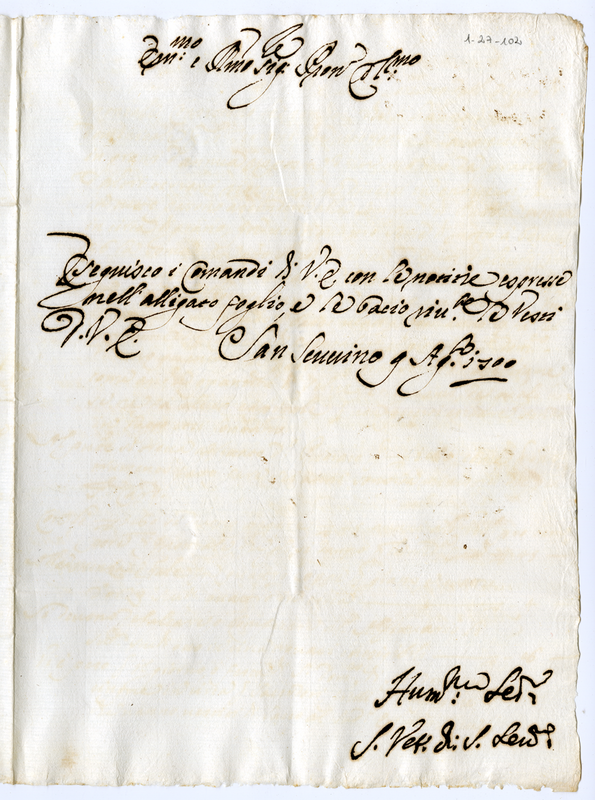 1-27-102
Em:mo e Rmo Sig:re Pron Col:mo
Eseguisco i Comandi di V.E. con le notizie espresse
nell'alligato foglio, e le bacio riv:te le Vesti
D. V. E. San Severino 9 Ag:to 1700
Hum:mo Ser:
S. Vesc: di S. Seve: